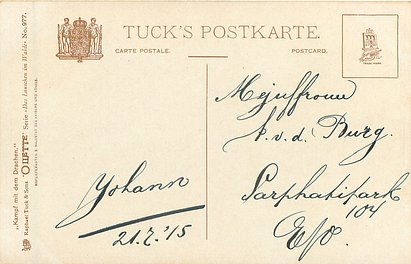 TUCK'S POSTKARTE.
CARTE POSTALE.
POSTCARD.
TRADE MARK
„Kampf mit dem Drachen."
Raphael Tuck & Sons „OILETTE" Serie «Das Lauschen im Walde» No. 977.
Mejuffrouw
v.d. Burg.
Sarphatipark
104
Johann
21.7.'15